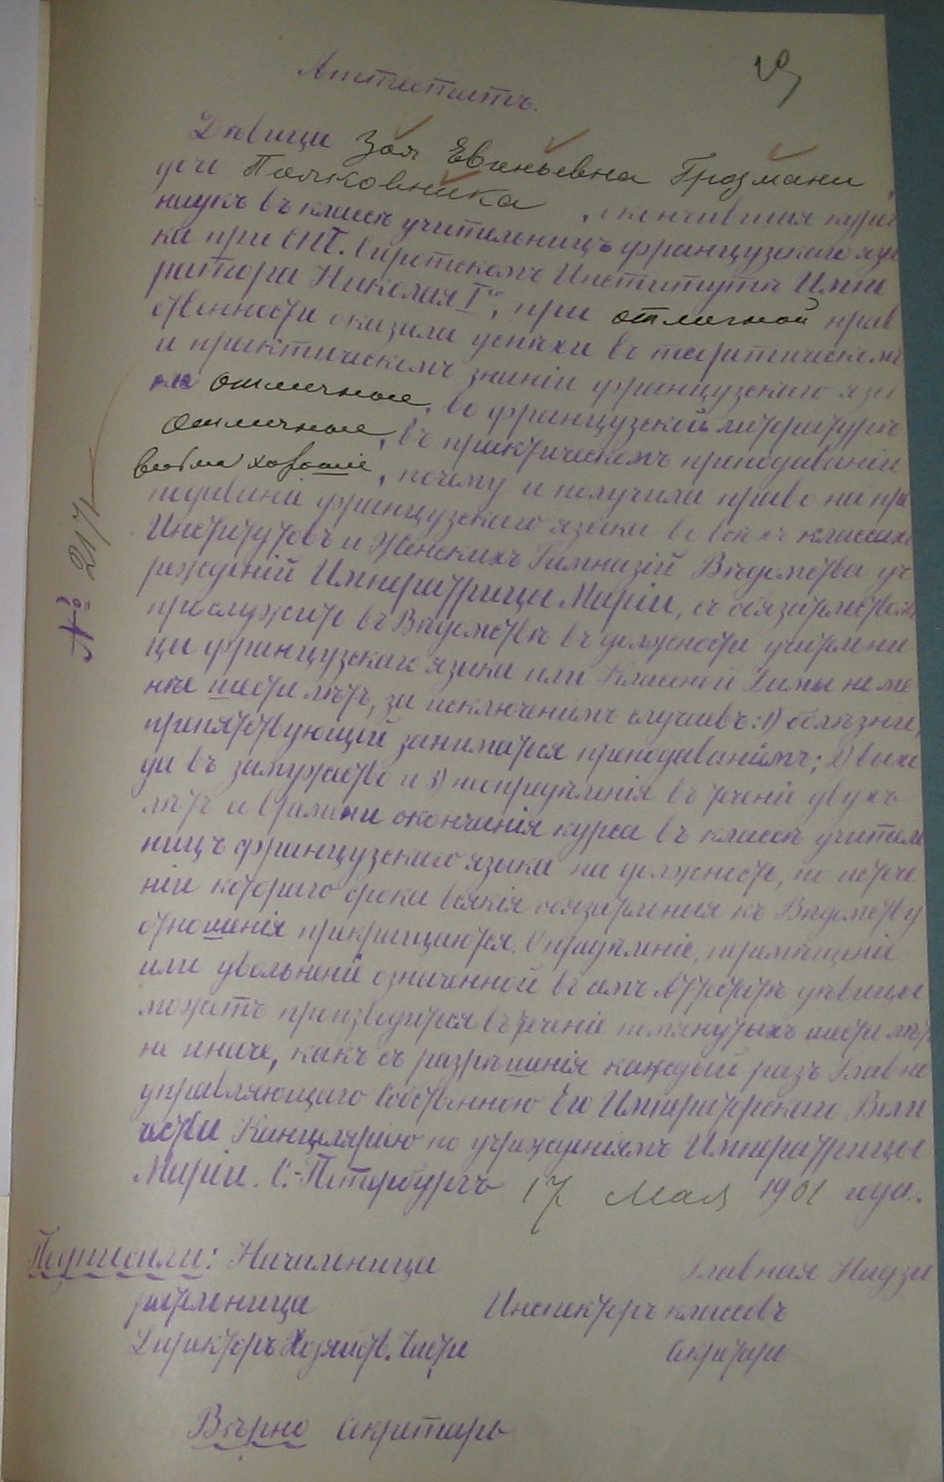 19
Аттестатъ.
Дѣвица Зоя Евгеньевна Грозмани,
дочь Полковника, окончившая курсъ
наукъ въ классѣ учительницъ французскаго язы
ка при СПб. Сиротскомъ Институтѣ Импе
ратора Николая Iго, при отличной нрав
ственности оказала успѣхи въ теоретическомъ
и практическомъ знаніи французскаго язы
ка отличные, во французской литературѣ
отличные, въ практическомъ преподаваніи
весьма хорошіе, почему и получила право на пре
подаваніе французскаго языка во всѣхъ классахъ
Институтовъ и Женскихъ Гимназій Вѣдомства уч
режденій Императрицы Маріи, съ обязательствомъ
прослужить въ Вѣдомствѣ въ должности учительни
цы французскаго языка или Классной Дамы не ме
нѣе шести лѣтъ, за исключеніемъ случаевъ: 1) болѣзни,
препятствующей заниматься преподаваніемъ; 2) выхо
да въ замужество и 3) неопредѣленія въ теченіе двухъ
лѣтъ со времени окончанія курса въ классѣ учитель
ницъ французскаго языка на должность, по истече
ніи котораго срока всякія обязательныя къ Вѣдомству
отношенія прекращаются. Опредѣленіе, перемѣщеніе
или увольненіе означенной въ семъ Аттестатѣ дѣвицы
можетъ производиться въ теченіе помянутыхъ шести лѣтъ
не иначе, какъ съ разрѣшенія каждый разъ Главно
управляющаго Собственною Его Императорскаго Вели
чества Канцеляріею по учрежденіямъ Императрицы
Маріи. С.-Петербургъ 17 Мая 1901 года.
№ 2171
Подписали: Начальница Главная Надзи
рательница Инспекторъ классовъ
Директоръ Хозяйств. Части Секретарь
Вѣрно Секретарь